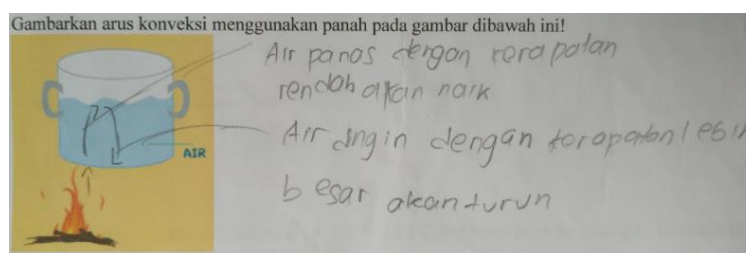 Gambarkan arus konveksi menggunakan panah pada gambar dibawah ini!
Air panas dengan kerapatan
rendah akan naik
Air dngin dengan kerapatan lebih
besar akan turun
AIR